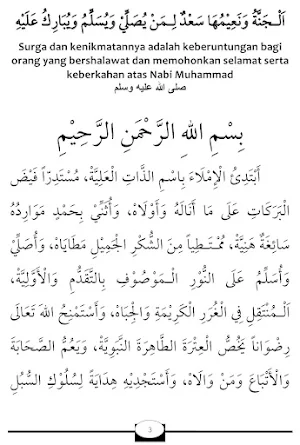 اَلْجَنَّةُ وَنَعِيْمُهَا سَعْدٌ لِمَنْ يُصَلِّيْ وَيُسَلِّمُ وَيُبَارِكُ عَلَيْهِ
Surga dan kenikmatannya adalah keberuntungan bagi
orang yang bershalawat dan memohonkan selamat serta
keberkahan atas Nabi Muhammad
صلى الله عليه وسلم
بِسْمِ اللهِ الرَّحْمَنِ الرَّحِيْمِ
أَبْتَدِئُ الْإِمْلَاءَ بِاسْمِ الذَّاتِ الْعَلِيَّةْ، مُسْتَدِرًّا فَيْضَ
الْبَرَكَاتِ عَلَى مَا أَنَالَهُ وَأَوْلَاهْ، وَأُثَنِّيْ بِحَمْدٍ مَوَارِدُهُ
سَائِغَةٌ هَنِيَّةْ، مُمْتَطِيًا مِنَ الشُّكْرِ الْجَمِيْلِ مَطَايَاهْ، وَأُصَلِّيْ
وَأُسَلِّمُ عَلَى النُّوْرِ الْمَوْصُوْفِ بِالتَّقَدُّمِ وَالْأَوَّلِيَّةْ،
اَلْمُنْتَقِلِ فِي الْغُرَرِ الْكَرِيْمَةِ وَالْجِبَاهْ، وَأَسْتَمْنِحُ اللهَ تَعَالَى
رِضْوَانًا يَخُصُّ الْعِتْرَةَ الطَّاهِرَةَ النَّبَوِيَّةْ، وَيَعُمُّ الصَّحَابَةَ
وَالْأَتْبَاعَ وَمَنْ وَالَاهْ، وَأَسْتَجْدِيْهِ هِدَايَةً لِسُلُوْكِ السُّبُلِ
3